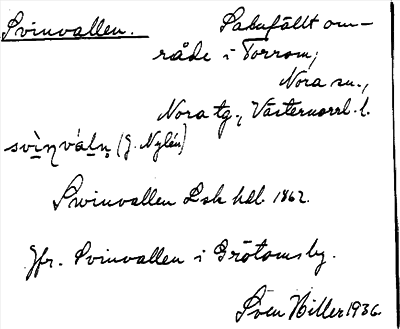 Svinvallen. Sabufällt om-
råde i Torrom,
Nora sn.,
Nora tg., Västernorrl. l.
(G. Nylén)
Swinvallen Lsk hdl. 1862.
Jfr. Svinvallen i Grötomsby.
Sven Hiller 1936.